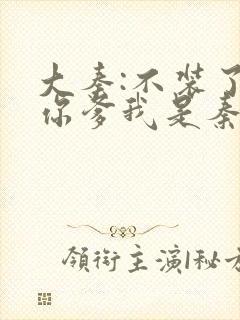 大秦:不装了
你爹我是秦
領銜主演|秘方